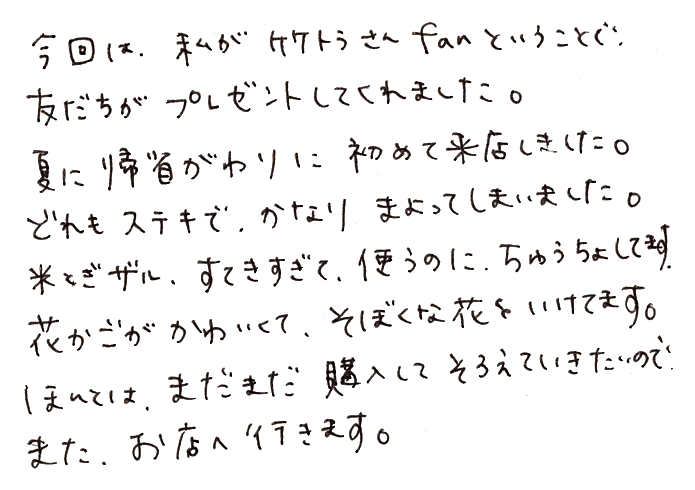 今回は、私がケケトラさんfanということで、
友だちがプレゼントしてくれました。
夏に帰省がわりに初めて来店しました。
どれもステキで、かなりまよってしまいました。
米とぎザル、すてきすぎて、使うのに、ちゅうちょしてます。
花かごがかわいくて、そぼくな花をいけてます。
ほんとは、まだまだ購入してそろえていきたいので、
また、お店へ行きます。